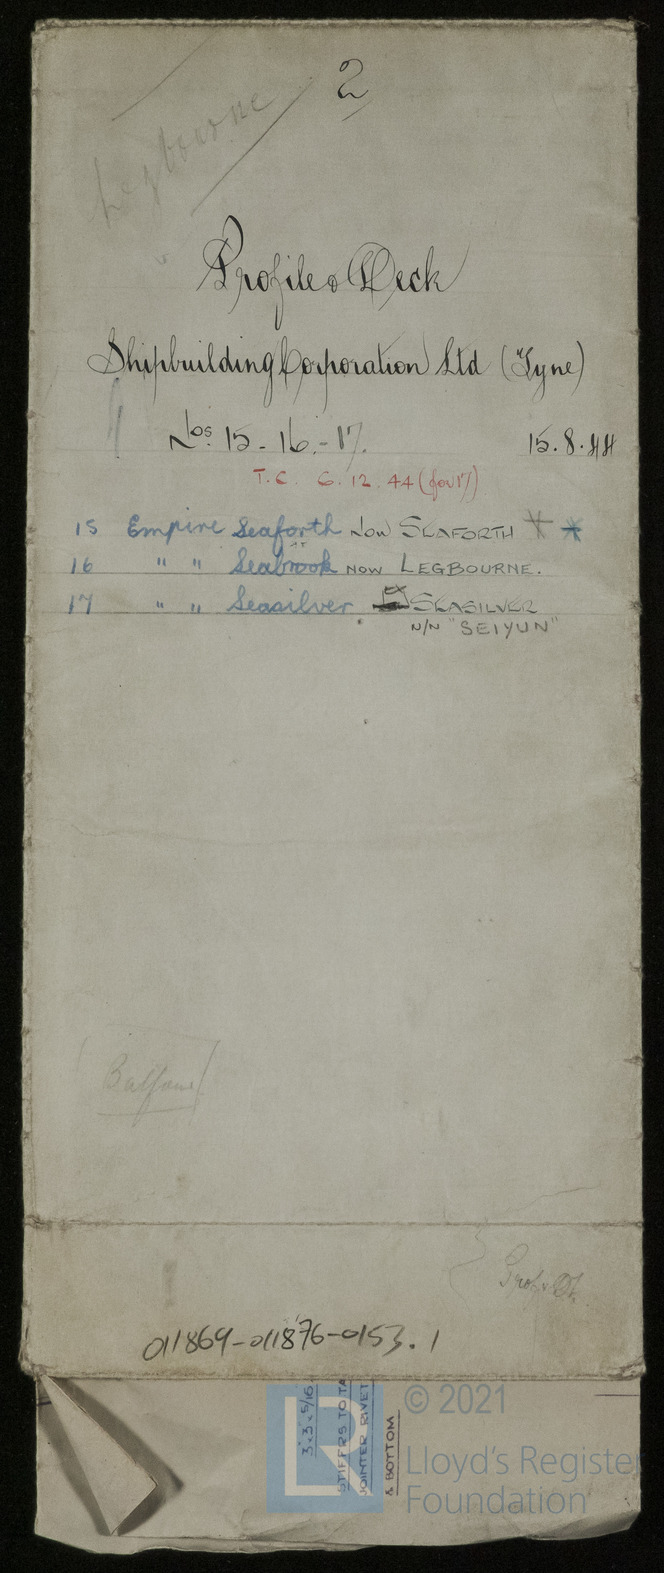 2
Legbourne
Profile & Deck
Shipbuilding Corporation Ltd (Tyne)
Nos. 15 - 16 - 17. 15.8.44
T.C. 6.12.44 (for 17)
15 Empire Seaforth Now SEAFORTH
16 " " Seabrook NOW LEGBOURNE.
17 " " Seasilver SEASILVER
N/N "SEIYUN"
Prof & Dk.
011869-011876-0153.1
3x3x5/16
STIFFRS TO TA
JOINTER RIVET
& BOTTOM
© 2021
Lloyd's Register
Foundation